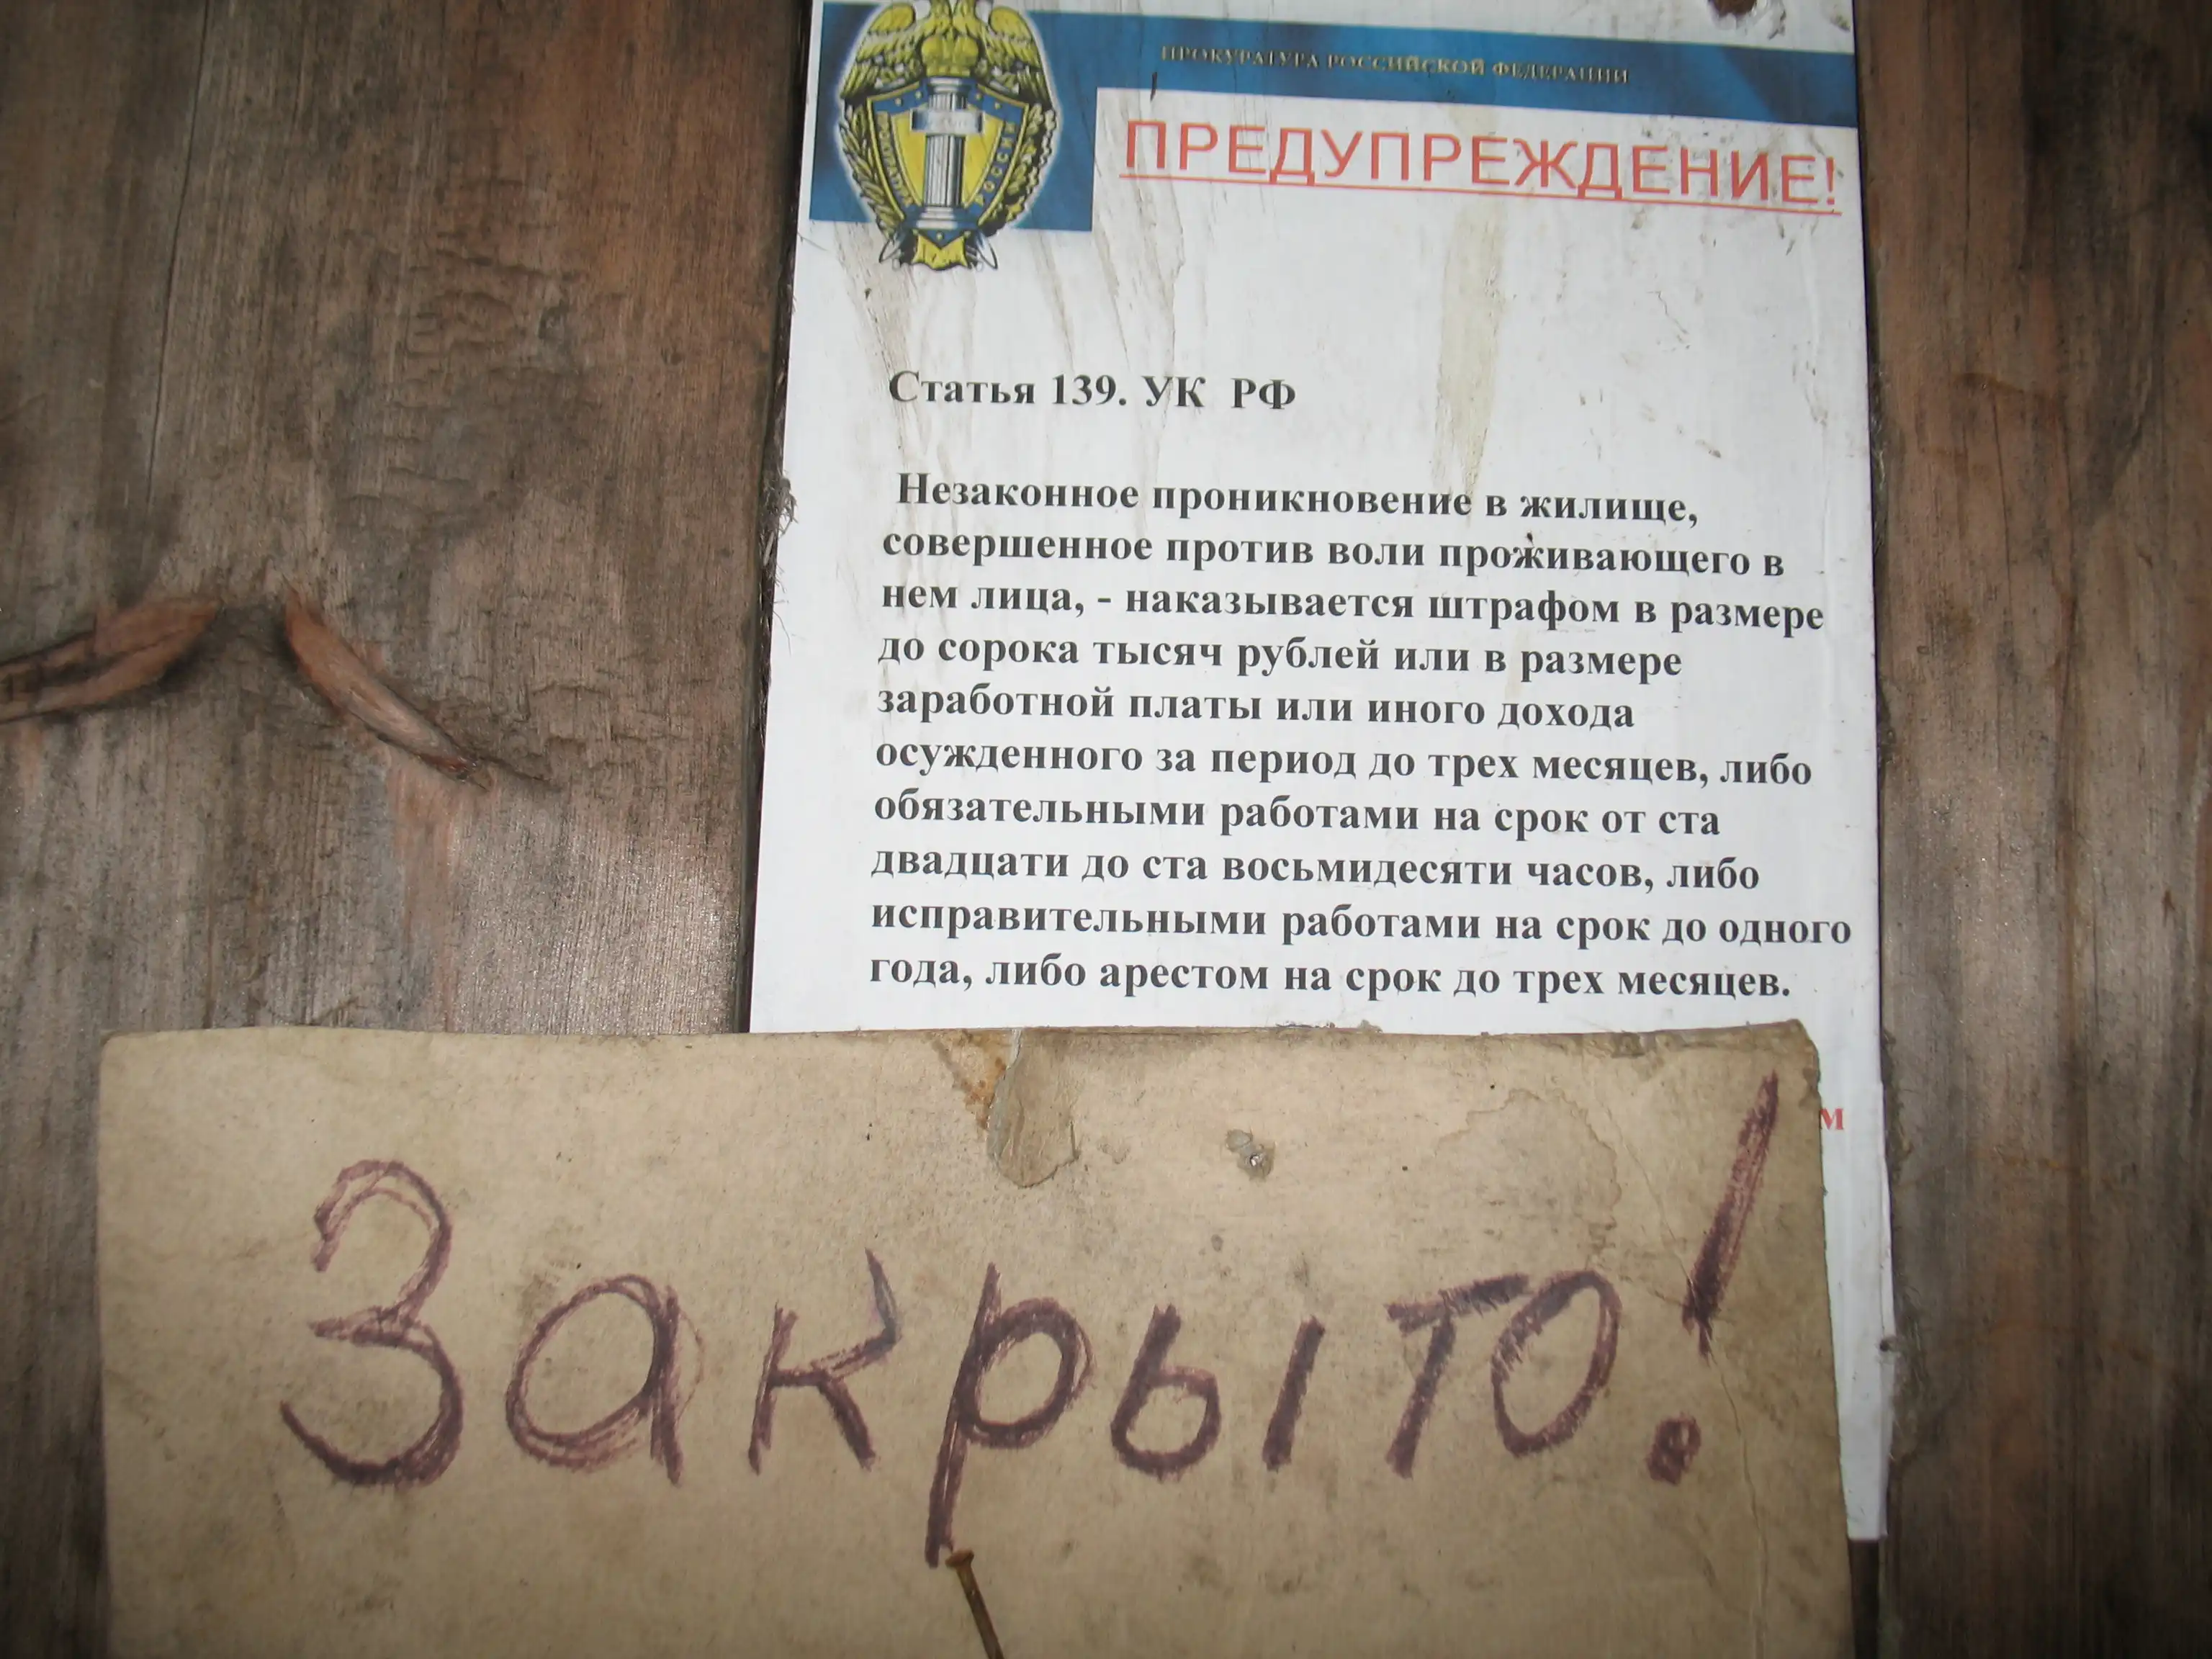 ПРОКУРАТУРА РОССИЙСКОЙ ФЕДЕРАЦИИ
ПРЕДУПРЕЖДЕНИЕ!
Статья 139. УК РФ
Незаконное проникновение в жилище,
совершенное против воли проживающего в
нем лица, - наказывается штрафом в размере
до сорока тысяч рублей или в размере
заработной платы или иного дохода
осужденного за период до трех месяцев, либо
обязательными работами на срок от ста
двадцати до ста восьмидесяти часов, либо
исправительными работами на срок до одного
года, либо арестом на срок до трех месяцев.
м
Закрыто!